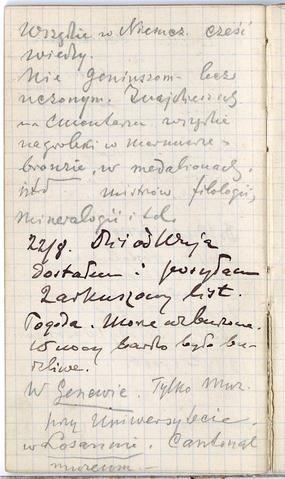 Wszędzie w Niemcz. cześć
wiedzy.
Nie Geniuszom - lecz
uczonym. Znajdziesz
na Cmentarzu wszystkie
nagrobki w marmurze -
bronzie, w medalionach,
mistrzów filologii,
mineralogii i t.d.
22/8. Dziś od Wuja
dostałem i posyłam
2 arkuszowy list.
Pogoda. Morze wzburzone.
W nocy bardzo było bu-
rzliwe.
W Genewie. Tylko Muz.
przy Uniwersytecie.
w Losannie. Cantonal
muzeum -